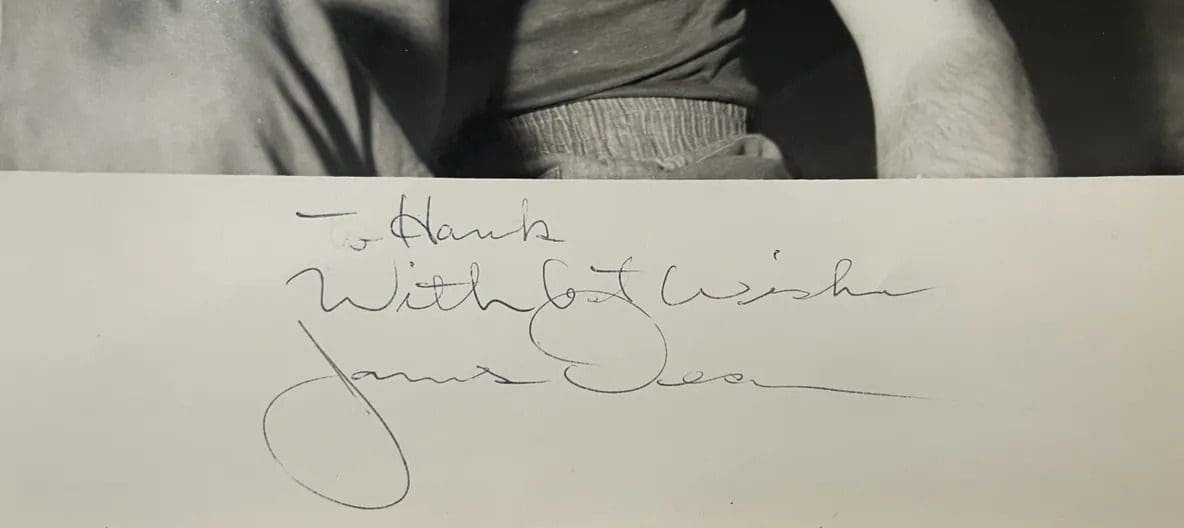 To Hank
With best Wishes
James Dean